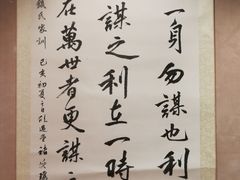 一身勿謀也利
謀之利在一時
在萬世者更謀之
錢氏家訓 己亥初夏